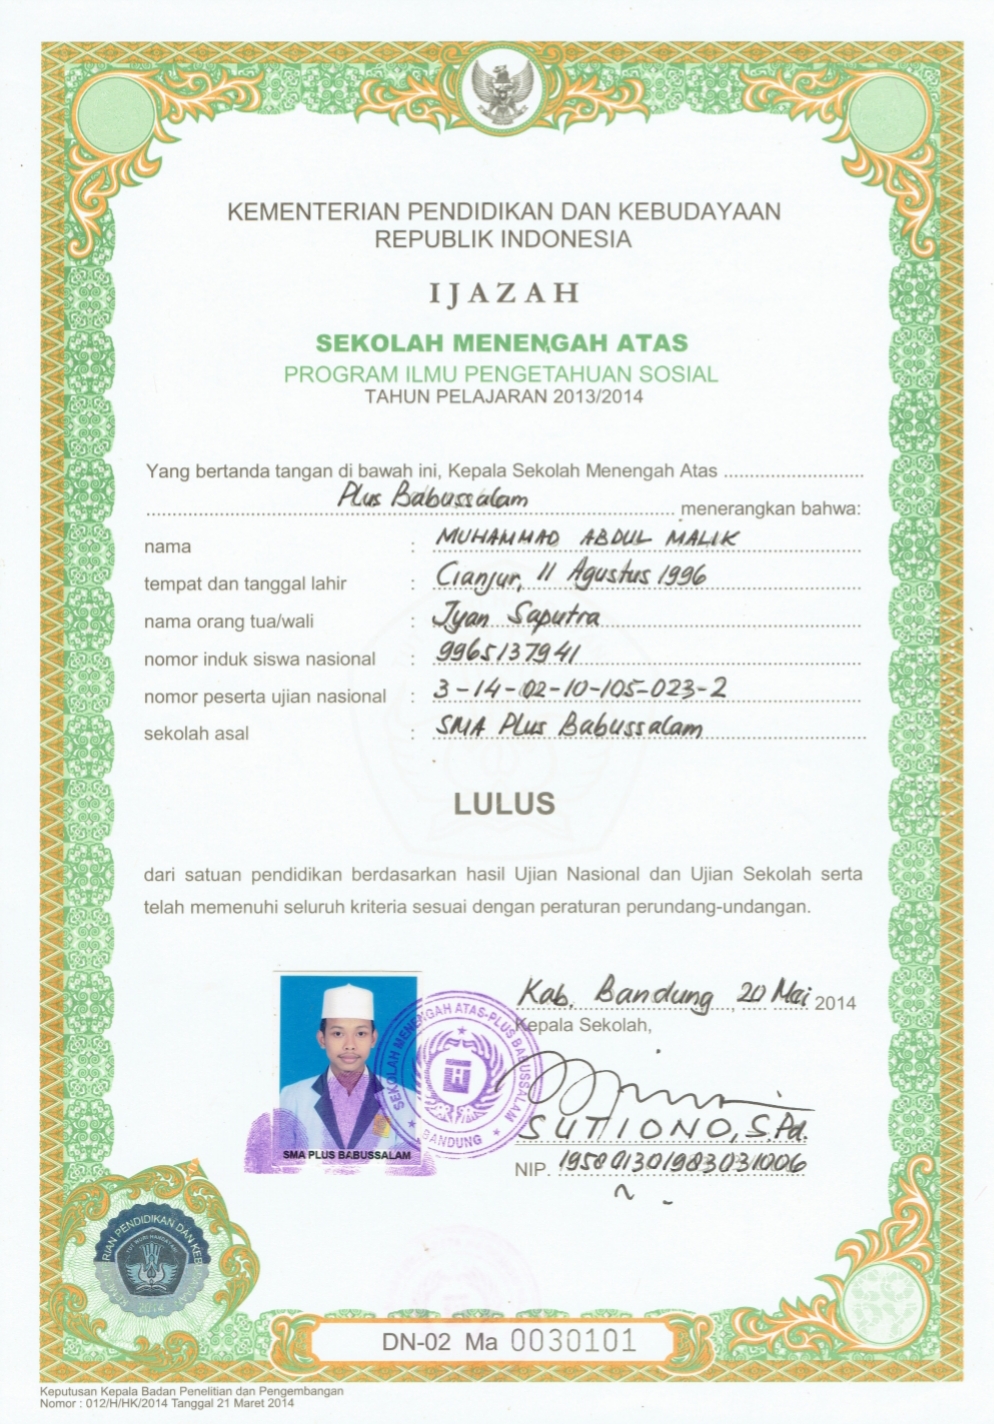 KEMENTERIAN PENDIDIKAN DAN KEBUDAYAAN
REPUBLIK INDONESIA
IJAZAH
SEKOLAH MENENGAH ATAS
PROGRAM ILMU PENGETAHUAN SOSIAL
TAHUN PELAJARAN 2013/2014
Yang bertanda tangan di bawah ini, Kepala Sekolah Menengah Atas
Plus Babussalam menerangkan bahwa:
nama : MUHAMMAD ABDUL MALIK
tempat dan tanggal lahir : Cianjur, 11 Agustus 1996
nama orang tua/wali : Iyan Saputra
nomor induk siswa nasional : 9965137941
nomor peserta ujian nasional : 3-14-02-10-105-023-2
sekolah asal : SMA Plus Babussalam
LULUS
dari satuan pendidikan berdasarkan hasil Ujian Nasional dan Ujian Sekolah serta
telah memenuhi seluruh kriteria sesuai dengan peraturan perundang-undangan.
Kab. Bandung, 20 Mei 2014
Kepala Sekolah,
SEKOLAH MENENGAH ATAS-PLUS BABUSSALAM
BANDUNG
SMA PLUS BABUSSALAM
SUTIONO, S.Pd.
NIP. 195801301983031006
RIAN PENDIDIKAN DAN KEB
2014
DN-02 Ma 0030101
Keputusan Kepala Badan Penelitian dan Pengembangan
Nomor : 012/H/HK/2014 Tanggal 21 Maret 2014